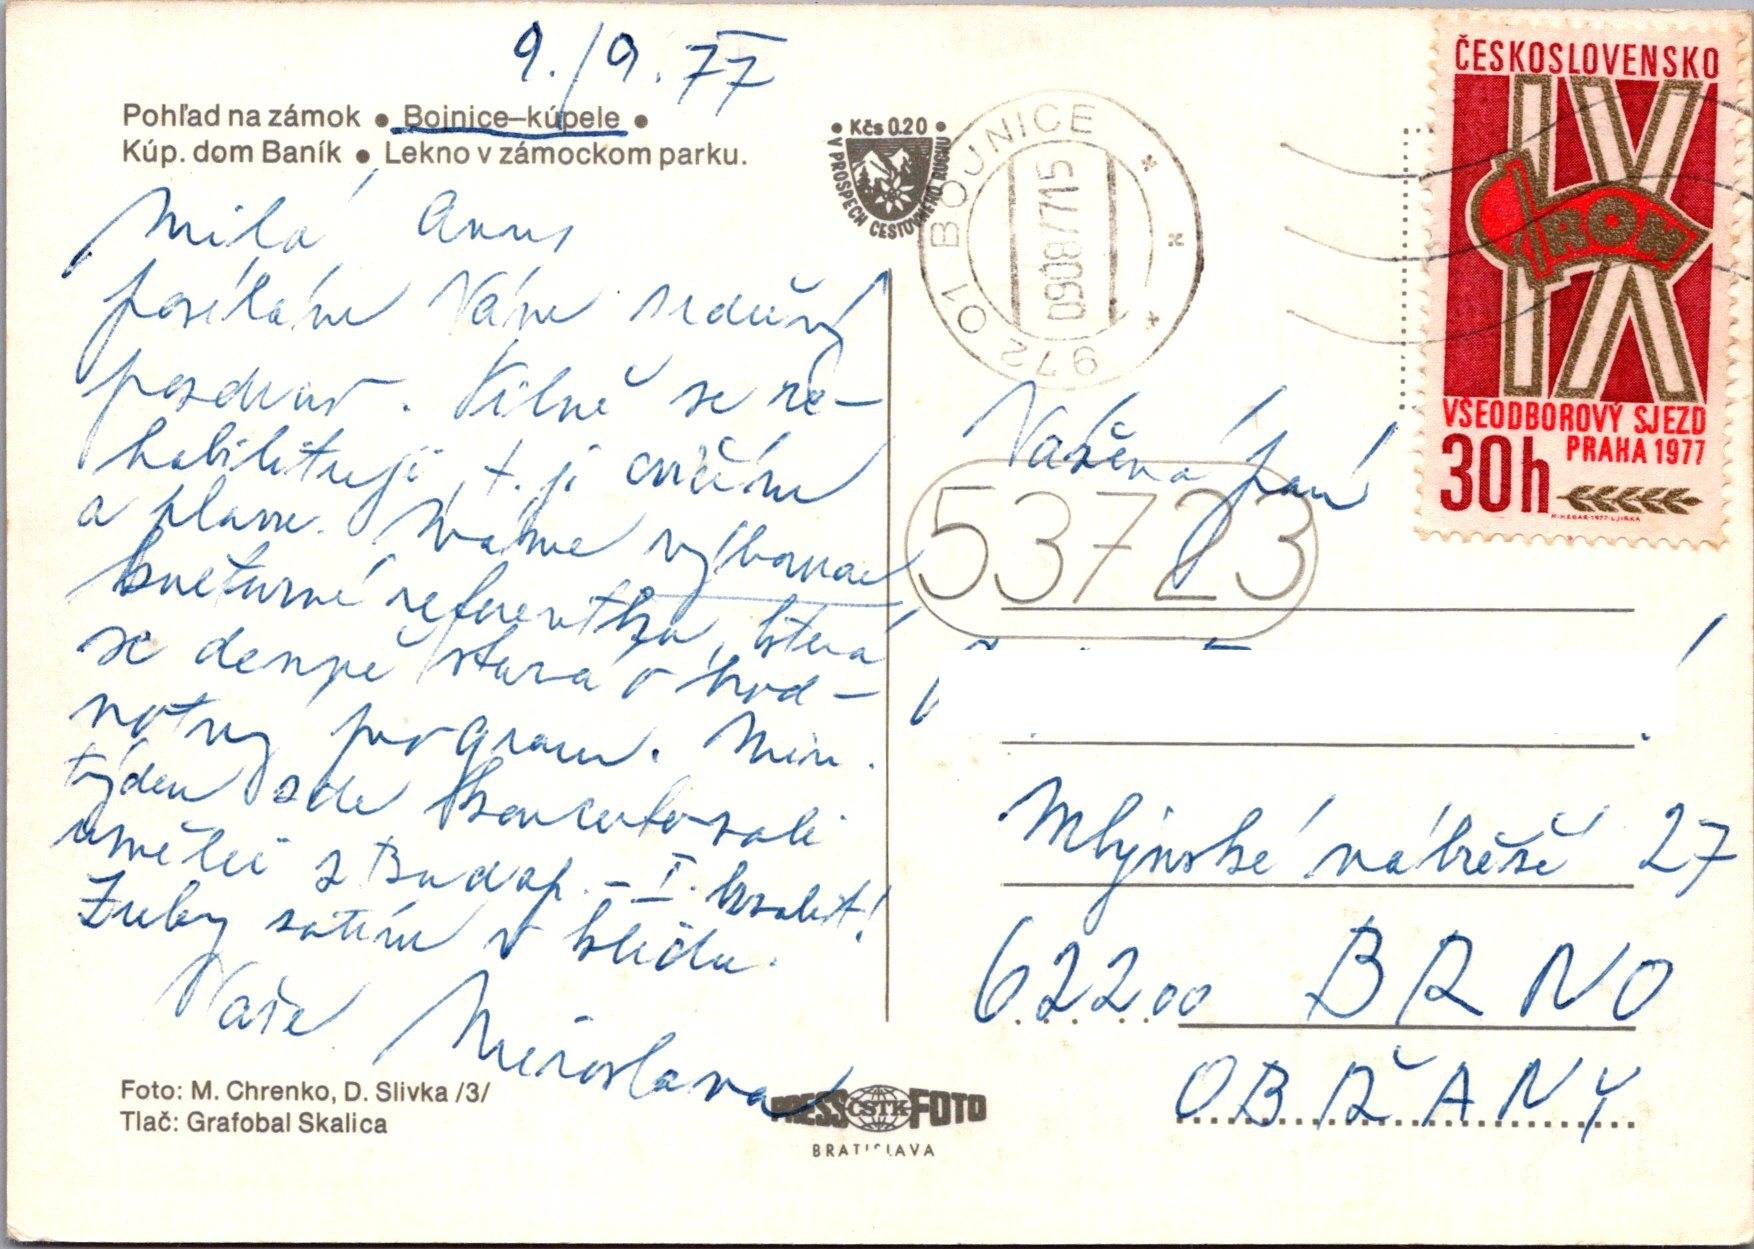 9./9.77
Pohľad na zámok • Bojnice–kúpele •
Kúp. dom Baník • Lekno v zámockom parku.
• Kčs 0.20 •
V PROSPECH CESTOVNÉHO RUCHU
972 01 BOJNICE
090877 15
ČESKOSLOVENSKO
IX
ROH
VŠEODBOROVÝ SJEZD
PRAHA 1977
30h
Milá
posílám Vám srdečný
pozdrav. Pilně se re-
habilituji, t. j. cvičím
a plavu. Máme výbornou
kulturní referentku, která
se denně stará o hod-
notný program. Min.
týden zde koncertovali
umělci z Budap. – I. kvalit!
Zuby zatím v klidu.
Vaše Miroslava
Vážená paní
53723
Mlýnské nábřeží 27
622 00 BRNO
OBŘANY
Foto: M. Chrenko, D. Slivka /3/
Tlač: Grafobal Skalica
PRESS ČSTK FOTO
BRATISLAVA